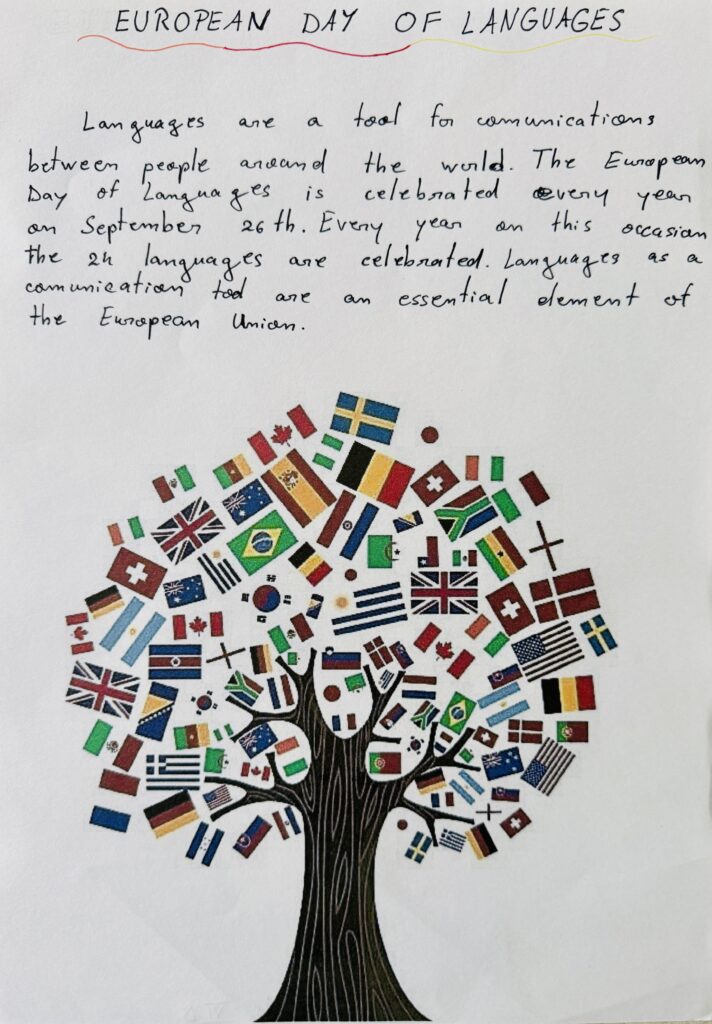 EUROPEAN DAY OF LANGUAGES
Languages are a tool for comunications
between people around the world. The European
Day of Languages is celebrated every year
on September 26th. Every year on this occasion
the 24 languages are celebrated. Languages as a
comunication tool are an essential element of
the European Union.